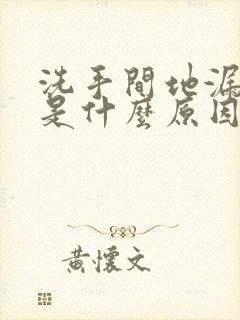 洗手間地漏
是什麼原因
黃懷文